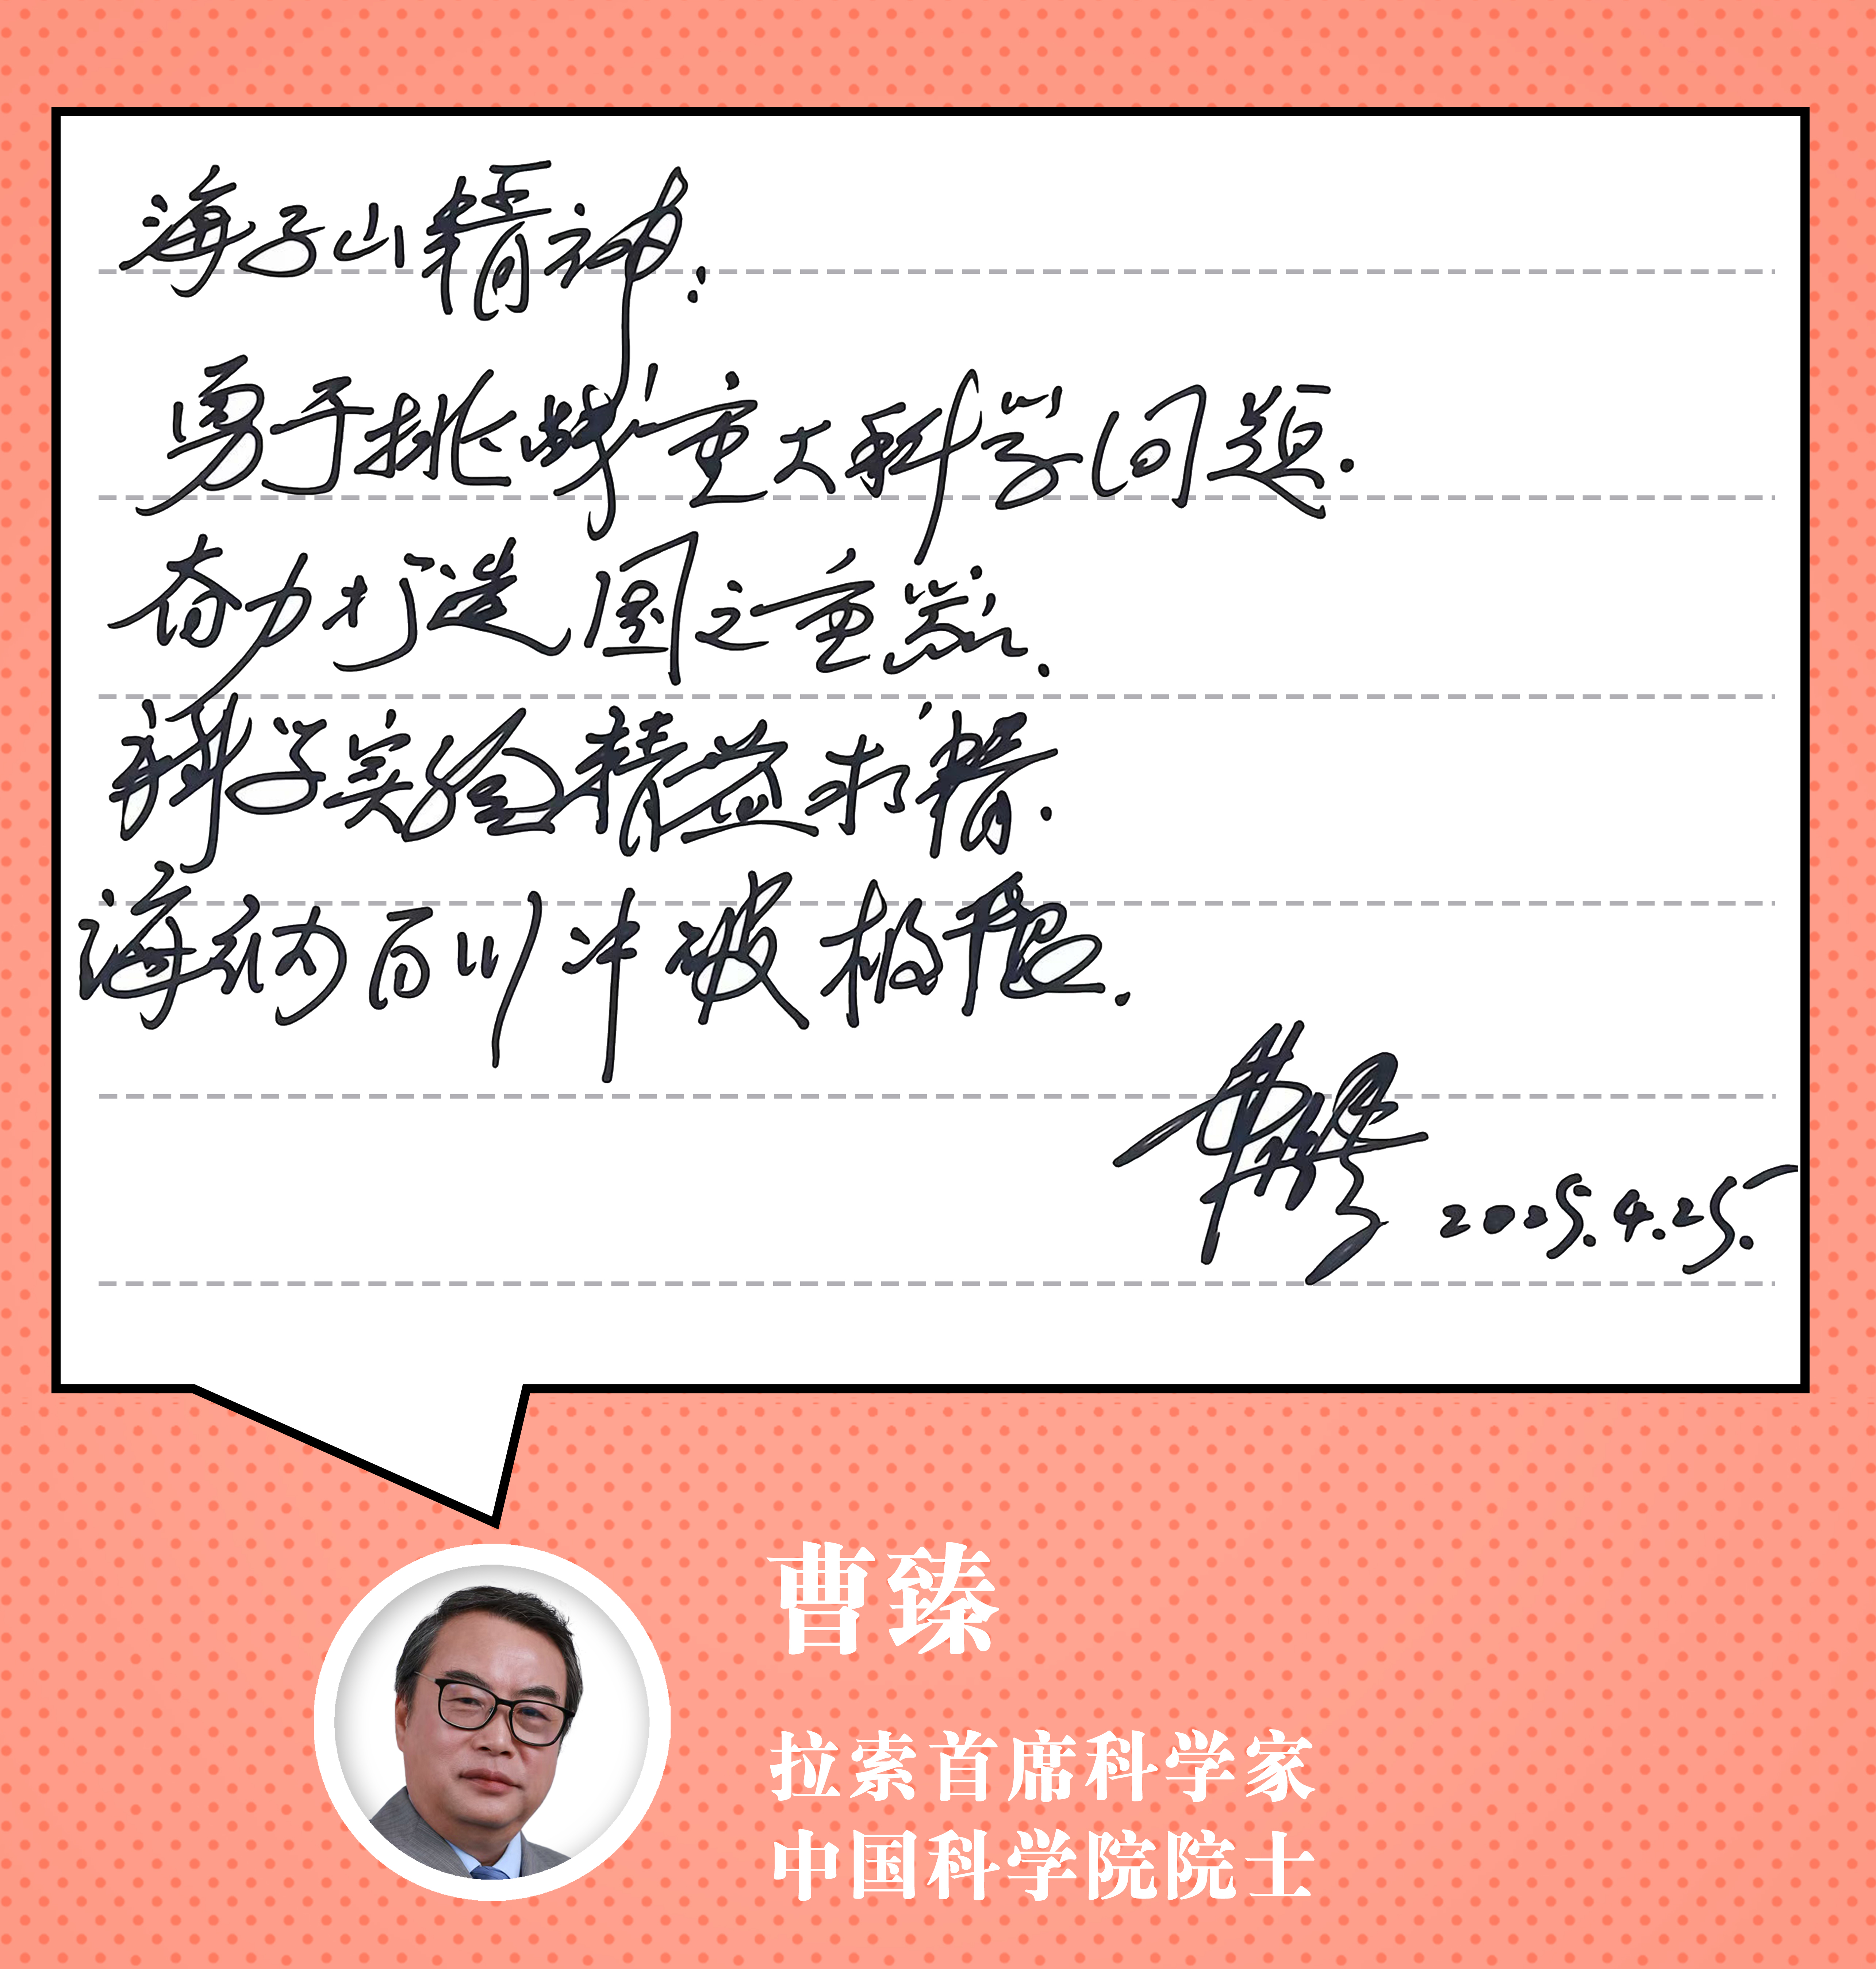 海子山精神:
勇于挑战重大科学问题.
奋力打造国之重器.
科学实验精益求精.
海纳百川冲破极限.
曹臻 2025.4.25.
曹臻
拉索首席科学家
中国科学院院士